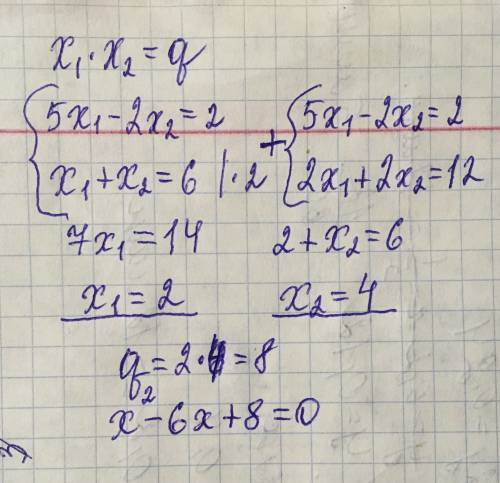 x₁·x₂=q
5x₁-2x₂=2 + 5x₁-2x₂=2
x₁+x₂=6 |·2 2x₁+2x₂=12
7x₁=14 2+x₂=6
x₁=2 x₂=4
q=2·4=8
x²-6x+8=0